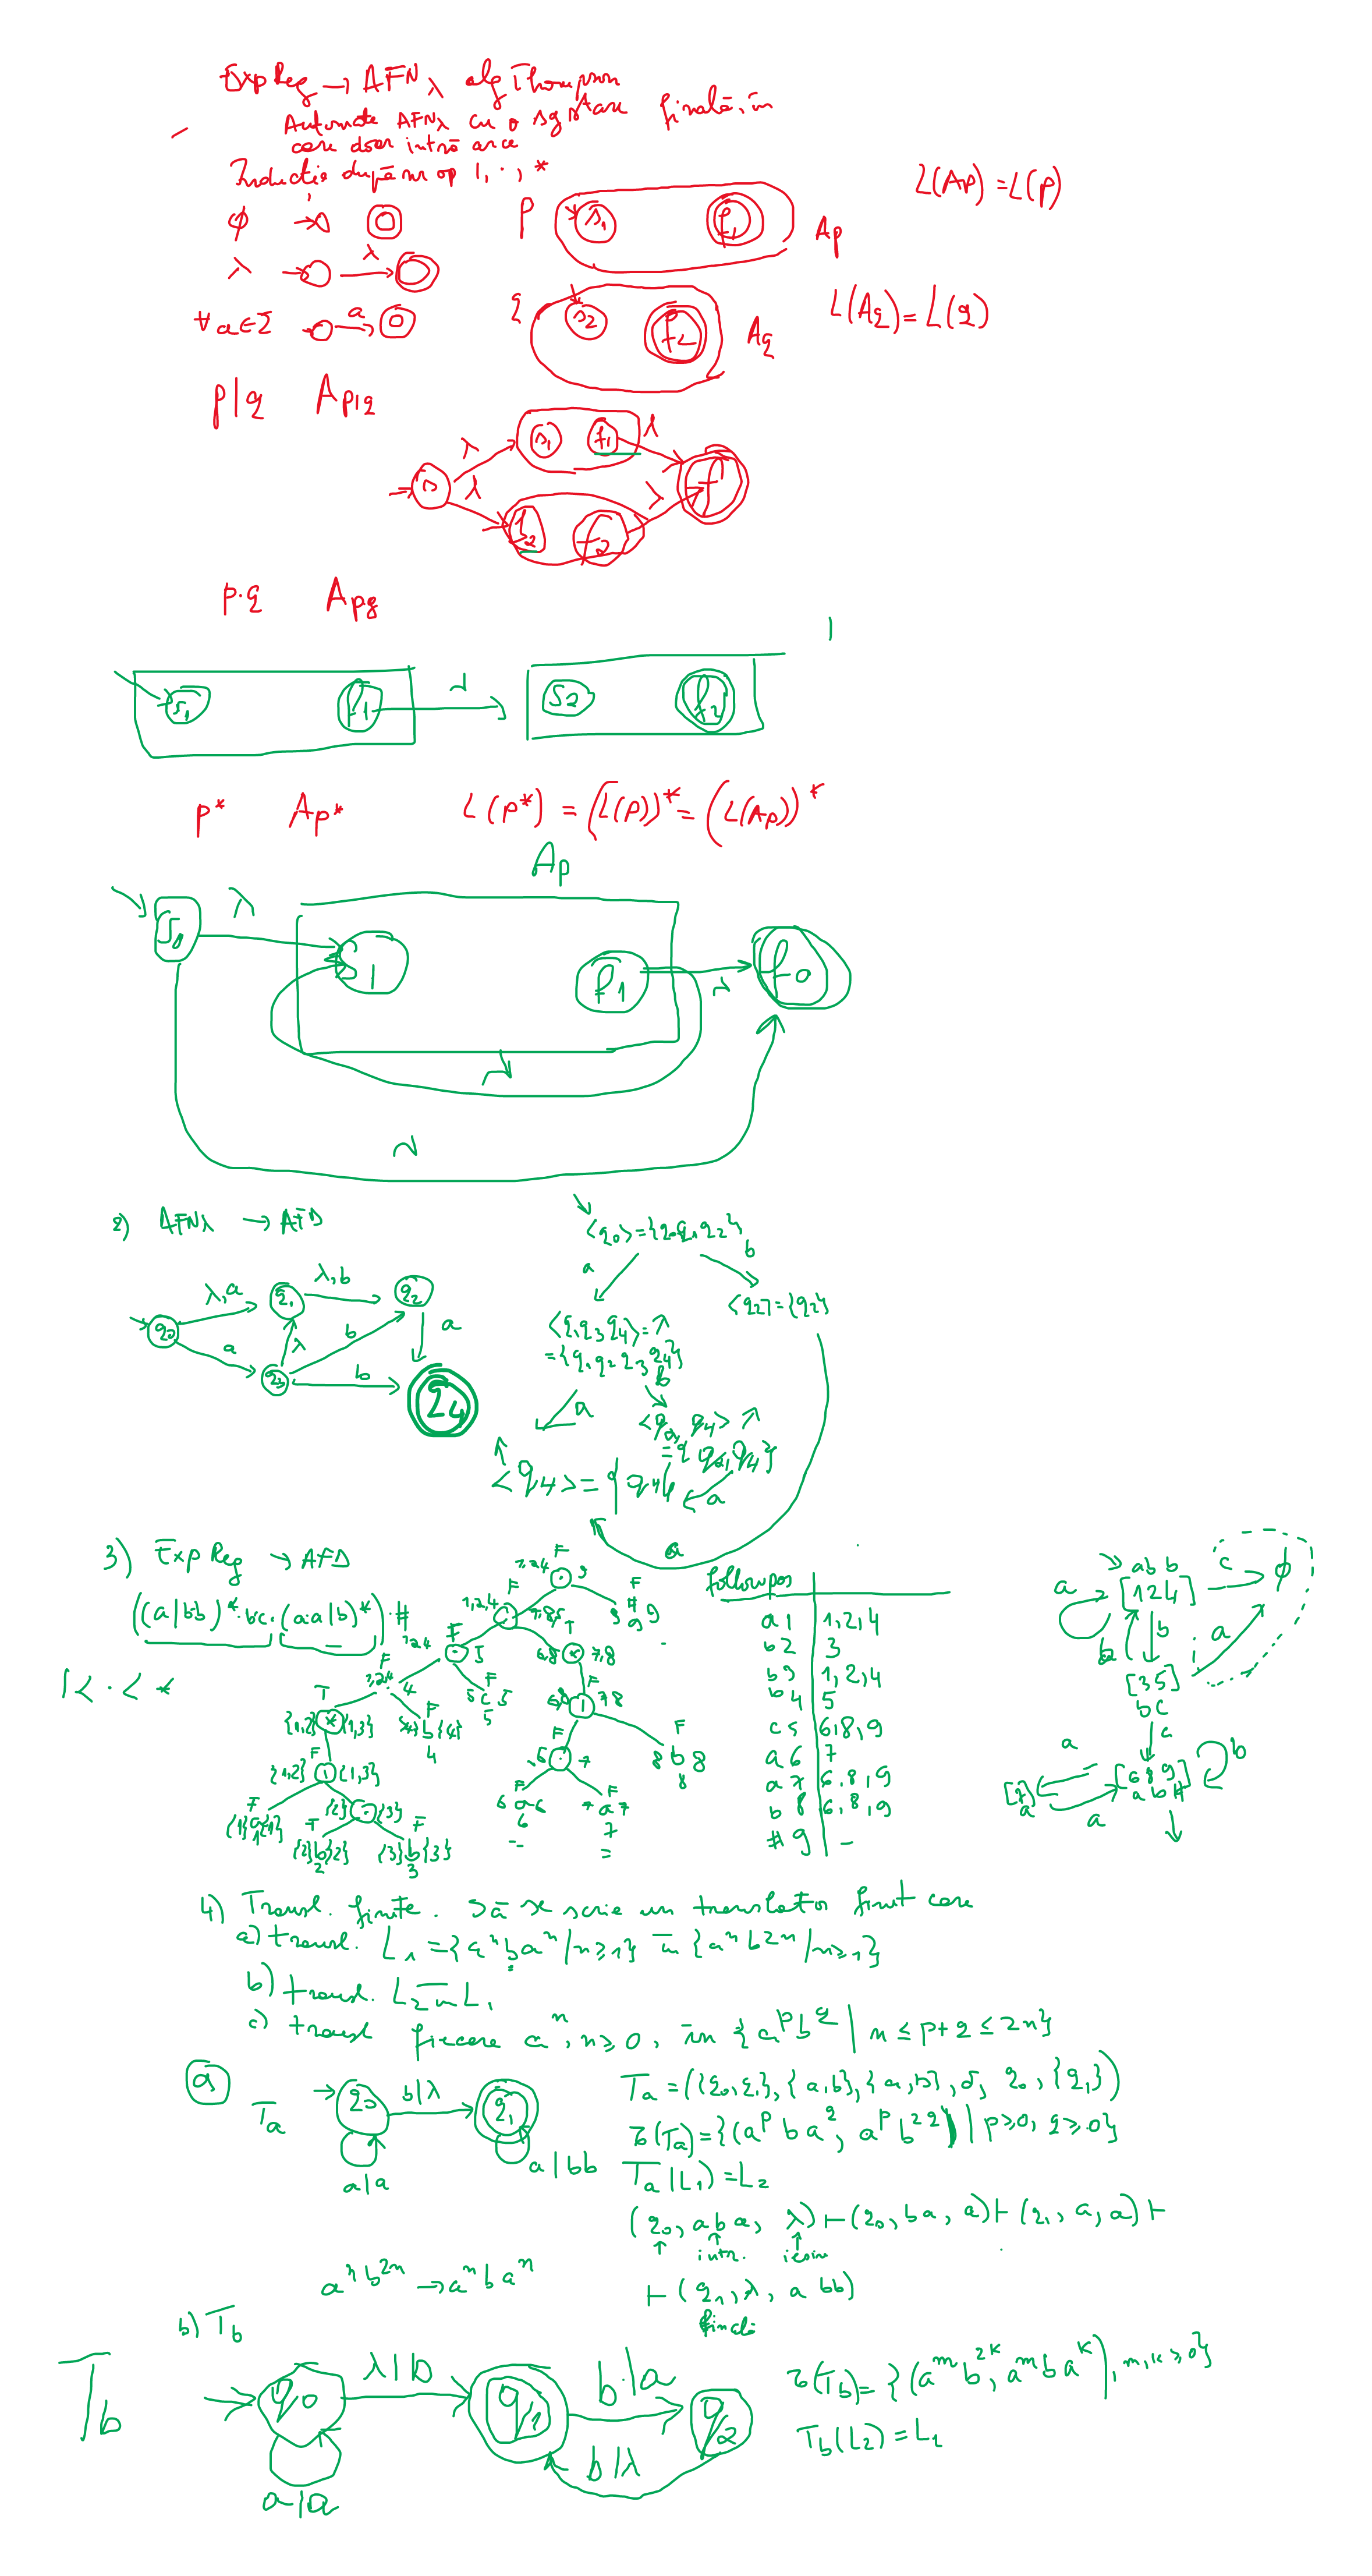 Exp Reg → AFN λ alg Thompson
Automate AFNλ cu o sg stare finală, în
care doar intră arce
Inducție după nr op |, ·, *
∅
λ λ
∀ a∈Σ a
p s₁ f₁ Ap L(Ap) = L(p)
q s₂ f₂ Aq L(Aq) = L(q)
p|q Ap|q
s λ λ s₁ f₁ λ s₂ f₂ λ f
p·q Apq
s₁ f₁ λ s₂ f₂
p* Ap* L(p*) = (L(p))* = (L(Ap))*
Ap
λ f₁ λ f₀
λ
λ
2) AFNλ → AFD
q₀ λ,a q₁ λ,b q₂ a
a q₃ λ b b q₄
<q₀> = {q₀q₁q₂}
a b
<q₂> = {q₂}
<q₁q₃q₄> =
= {q₁q₂q₃q₄}
a b
<q₂,q₄>
= {q₂,q₄}
<q₄> = {q₄} a
a
3) Exp Reg → AFD
((a|bb)*·bc·(aa|b)*)·#
| < · < *
followpos
a 1 1,2,4
b 2 3
b 3 1,2,4
b 4 5
c 5 6,8,9
a 6 7
a 7 6,8,9
b 8 6,8,9
# 9 –
abb
a [124] c ∅
b b a
[35]
bc
c
[7] a [689] b
a a ab#
4) Transl. finite. Să se scrie un translator finit care
a) transl. L₁ = {aⁿbaⁿ/n≥1} în {aⁿb²ⁿ/n≥1}
b) transl. L₂ în L₁
c) transl fiecare aⁿ, n≥0, în {aᵖb^q | n ≤ p+q ≤ 2n}
a
Ta q₀ b|λ q₁
a|a a|bb
Ta = ({q₀,q₁},{a,b},{a,b},δ, q₀,{q₁})
τ(Ta) = {(aᵖ b a^q, aᵖ b^2q) | p≥0, q≥0}
Ta(L₁) = L₂
(q₀, aba, λ) ⊢ (q₀, ba, a) ⊢ (q₁, a, a) ⊢
intr. ieșire
⊢ (q₁, λ, abb)
finală
aⁿb²ⁿ → aⁿbaⁿ
b) Tb
Tb q₀ λ|b q₁ b|a q₂
a|a b|λ
τ(Tb) = {(aᵐb²ᵏ, aᵐbaᵏ), m,k ≥ 0}
Tb(L₂) = L₁